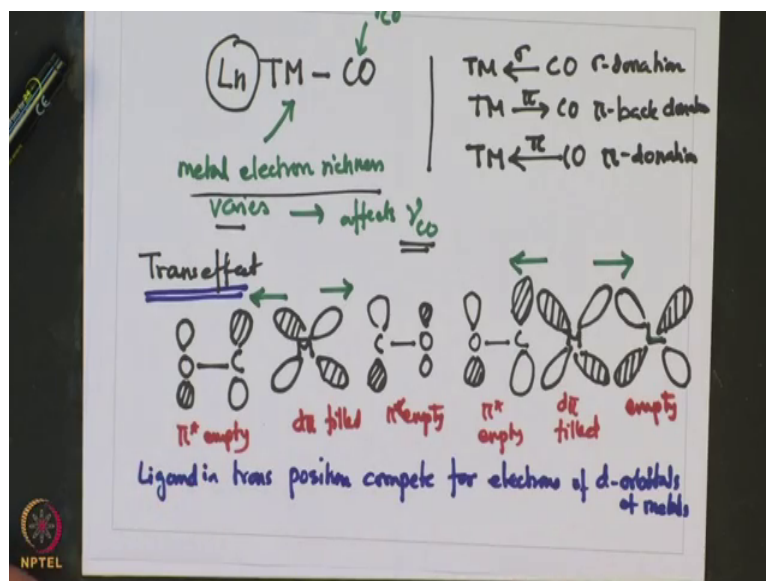 νCO
Ln TM – CO
metal electron richness
varies → affects νCO
TM ←σ CO σ-donation
TM π→ CO π-back donation
TM ←π CO π-donation
Trans effect
O – C M C – O O – C M L
π* empty dπ filled π* empty π* empty dπ filled empty
Ligand in trans position compete for electrons of d-orbitals
of metals
NPTEL